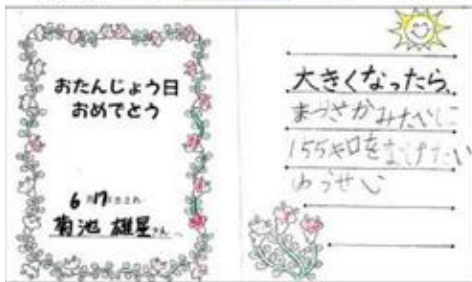 おたんじょう日
おめでとう
6月17日生まれ
菊池 雄星さん
大きくなったら、
まつざかみたいに
155キロをなげたい
ゆうせい